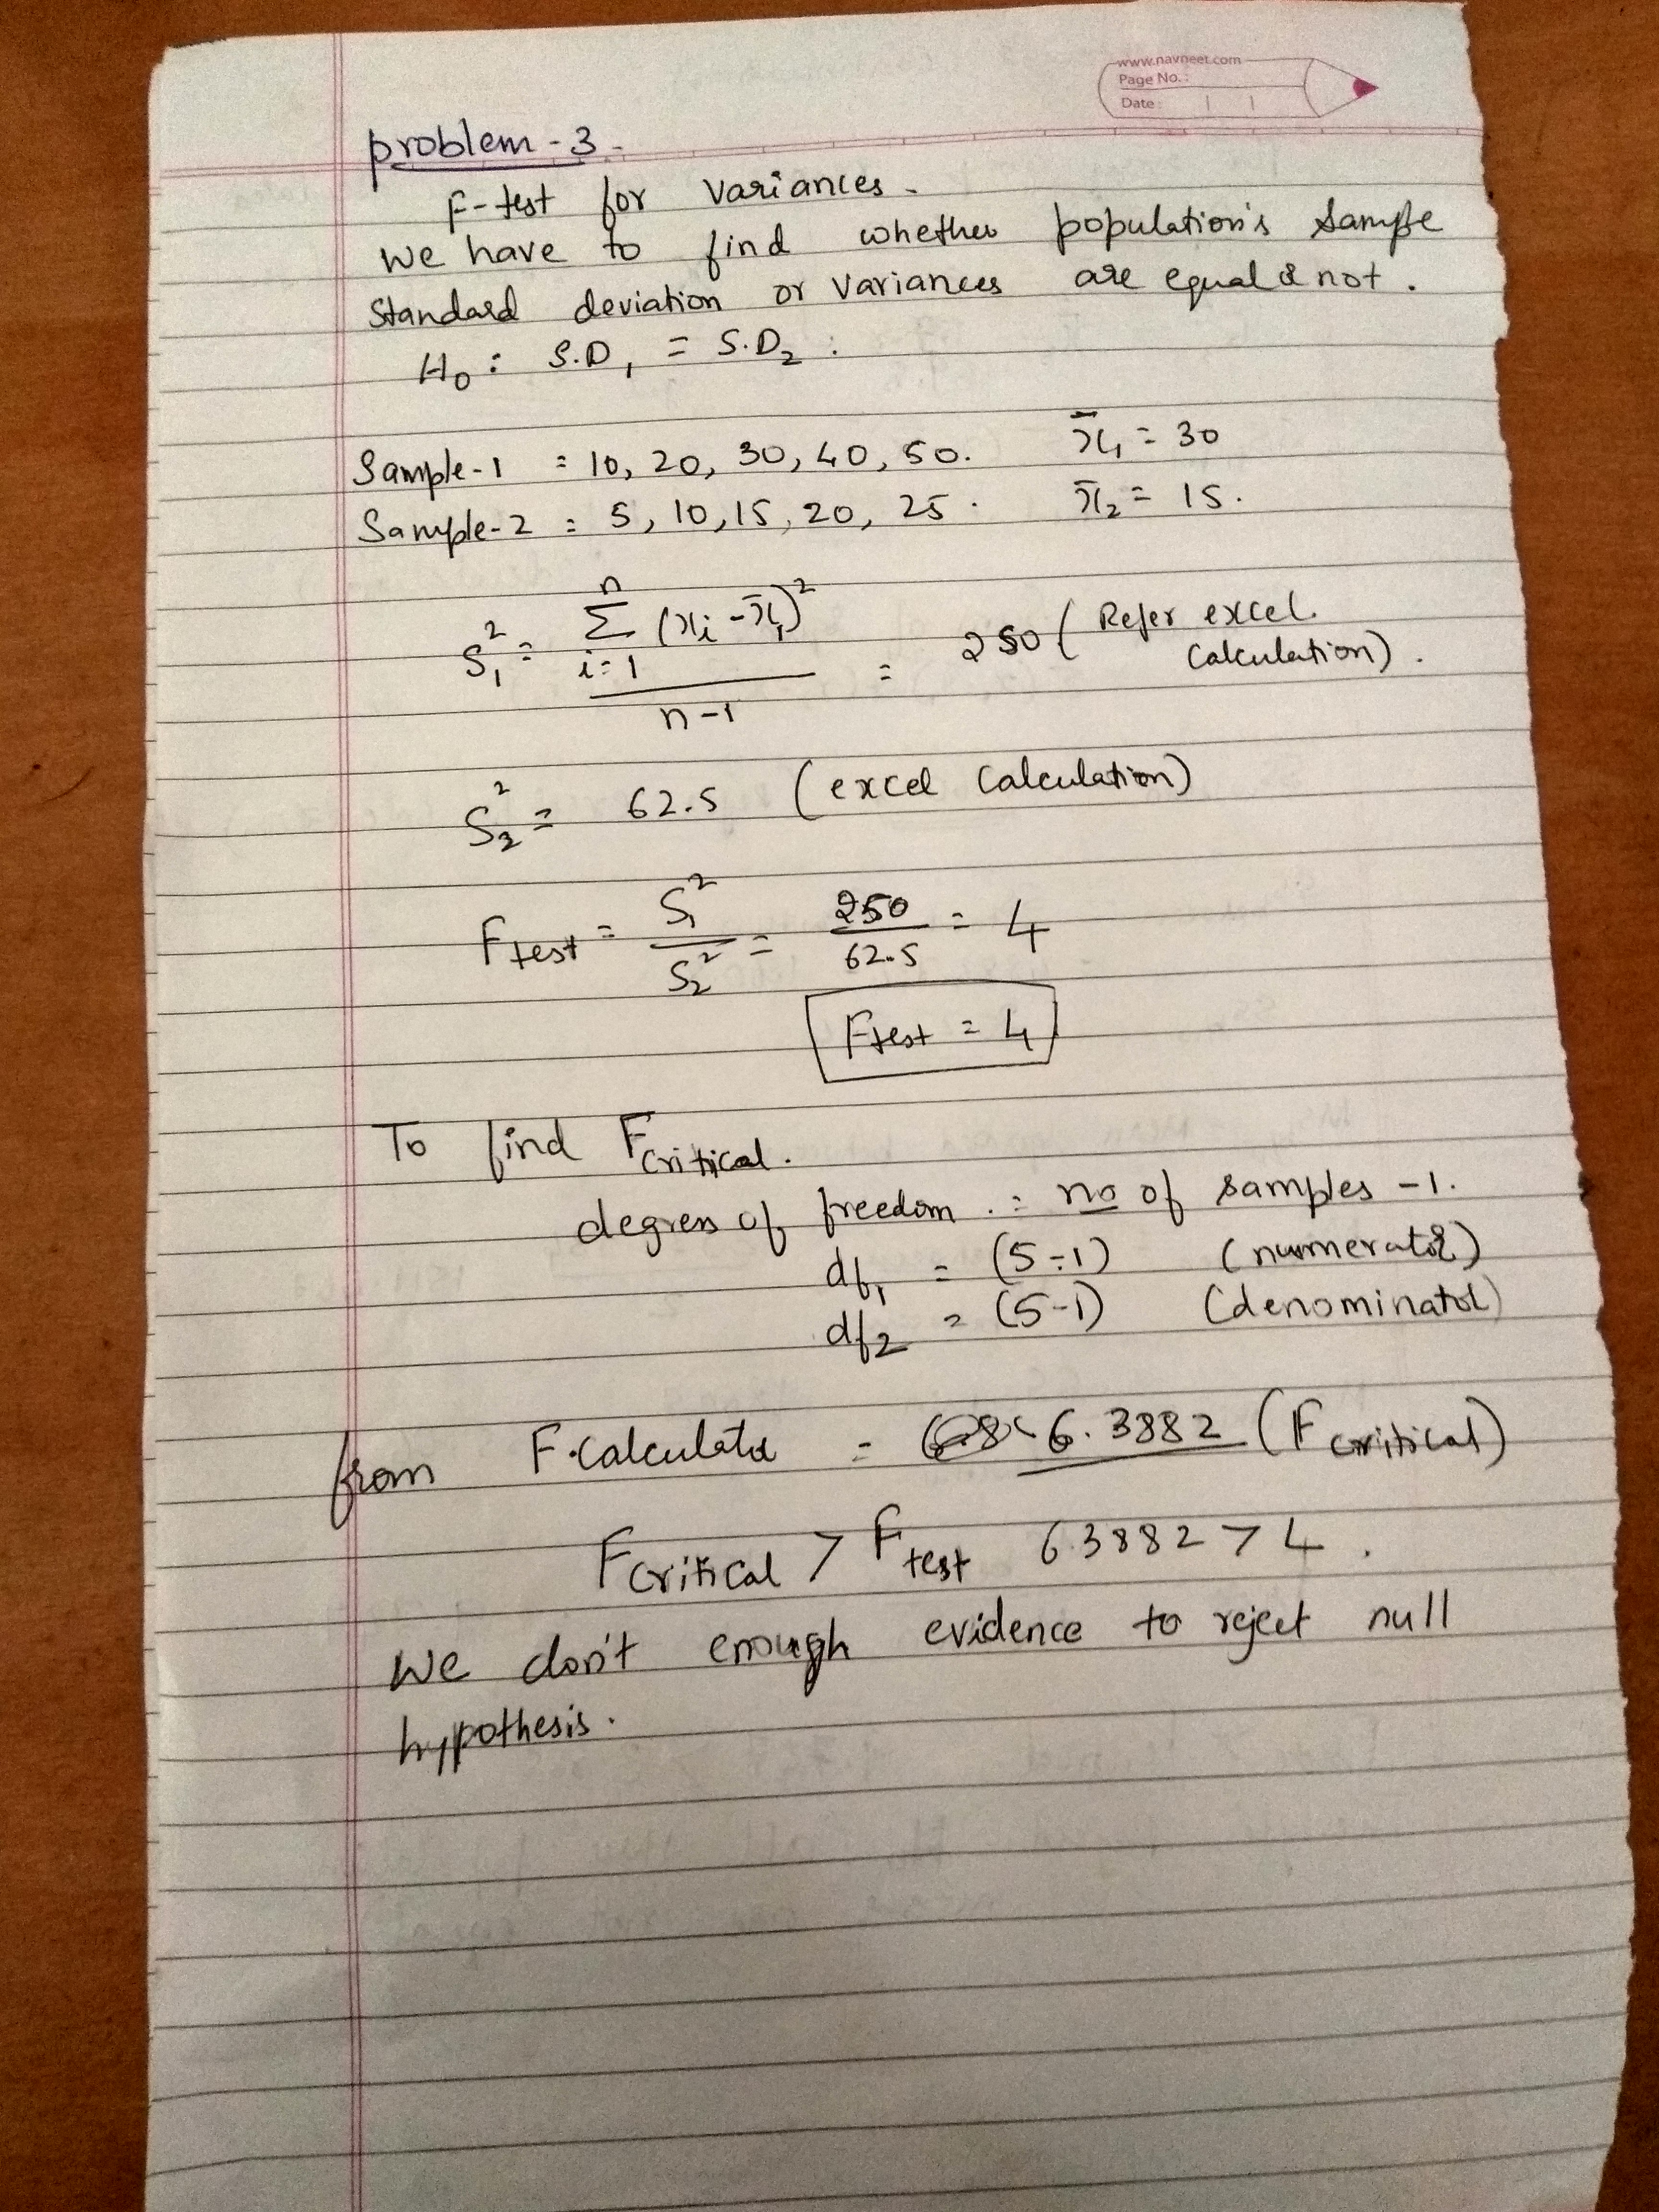 www.navneet.com
Page No.:
Date:
problem-3-
F-test for variances.
We have to find whether population's sample
standard deviation or variances are equal & not.
H₀: S.D₁ = S.D₂.
Sample-1 = 10, 20, 30, 40, 50. x̄₁ = 30
Sample-2 = 5, 10, 15, 20, 25. x̄₂ = 15.
S₁² = Σ_{i=1}^{n} (xi - x̄₁)² / n-1 = 250 ( Refer excel.
Calculation).
S₂² = 62.5 (excel calculation)
F test = S₁²/S₂² = 250/62.5 = 4
Ftest = 4
To find Fcritical.
degrees of freedom. = no of samples -1.
df₁ = (5-1) (numerator)
df₂ = (5-1) (denominator)
from F.calculator = 6.3882 (F critical)
Fcritical > Ftest 6.3882 > 4.
We don't enough evidence to reject null
hypothesis.